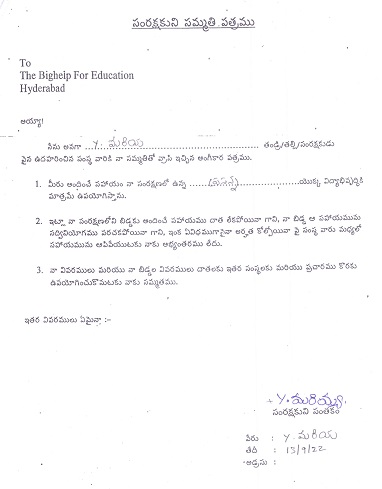 సంరక్షకుని సమ్మతి పత్రము
To
The Bighelp For Education
Hyderabad
అయ్యా!
నేను అనగా ...Y. మరియ................ తండ్రి/తల్లి/సంరక్షకుడు
పైన ఉదహరించిన సంస్థ వారికి నా సమ్మతితో వ్రాసి ఇచ్చిన అంగీకార పత్రము.
1. మీరు అందించే సహాయం నా సంరక్షణలో ఉన్న ................యొక్క విద్యాభివృద్ధికి
మాత్రమే ఉపయోగిస్తాను.
2. ఇట్లా నా సంరక్షణలోని బిడ్డకు అందించే సహాయము దాత లేకపోయినా గాని, నా బిడ్డ ఆ సహాయమును
సద్వినియోగము పరచకపోయినా గాని, ఇంక ఏవిధముగానైనా అర్హత కోల్పోయినా పై సంస్థ వారు మధ్యలో
సహాయమును ఆపివేయుటకు నాకు అభ్యంతరము లేదు.
3. నా వివరములు మరియు నా బిడ్డల వివరములు దాతలకు ఇతర సంస్థలకు మరియు ప్రచారము కొరకు
ఉపయోగించుకొనుటకు నాకు సమ్మతము.
ఇతర వివరములు ఏమైనా :-
Y. మరియమ్మ
సంరక్షకుని సంతకం
పేరు : Y. మరియ
తేది : 13/9/22
అడ్రసు :